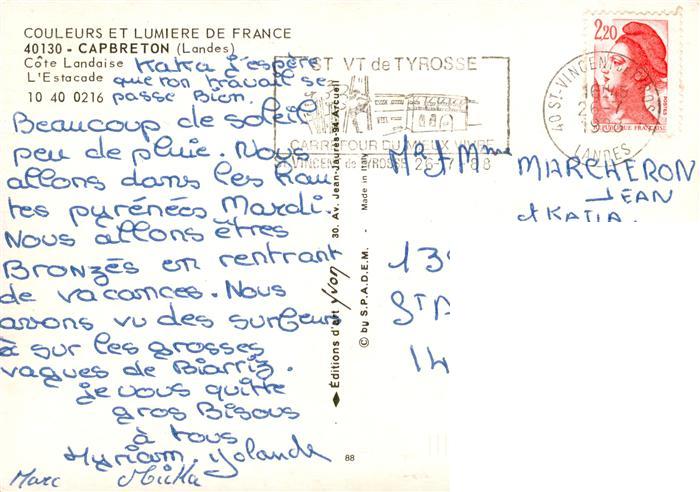 COULEURS ET LUMIERE DE FRANCE
40130 - CAPBRETON (Landes)
Côte Landaise
L'Estacade
10 40 0216
Kaka j'espère
que ton travail se
passe bien.
Beaucoup de soleil
peu de pluie. Nous
allons dans les hau
tes pyrénées Mardi.
Nous allons êtres
Bronzés en rentrant
de vacances. Nous
avons vu des surfeur
à sur les grosses
vagues de Biarriz.
je vous quitte
gros Bisous
à tous
Myriam. Yolande
Marc
88
◆ Éditions d'art yvon
30. Av. Jean-Jaurès-94-Arcueil
© by S.P.A.D.E.M. - Made in
ST VT de TYROSSE
CARREFOUR DU MIEUX VIVRE
ST VINCENT de TYROSSE 26-7-88
40 ST-VINCENT-DE-TYROSSE
LANDES
2,20
REPUBLIQUE FRANÇAISE
POSTES
Mr et Mme MARCHERON
JEAN
et KATIA.
13
St
14